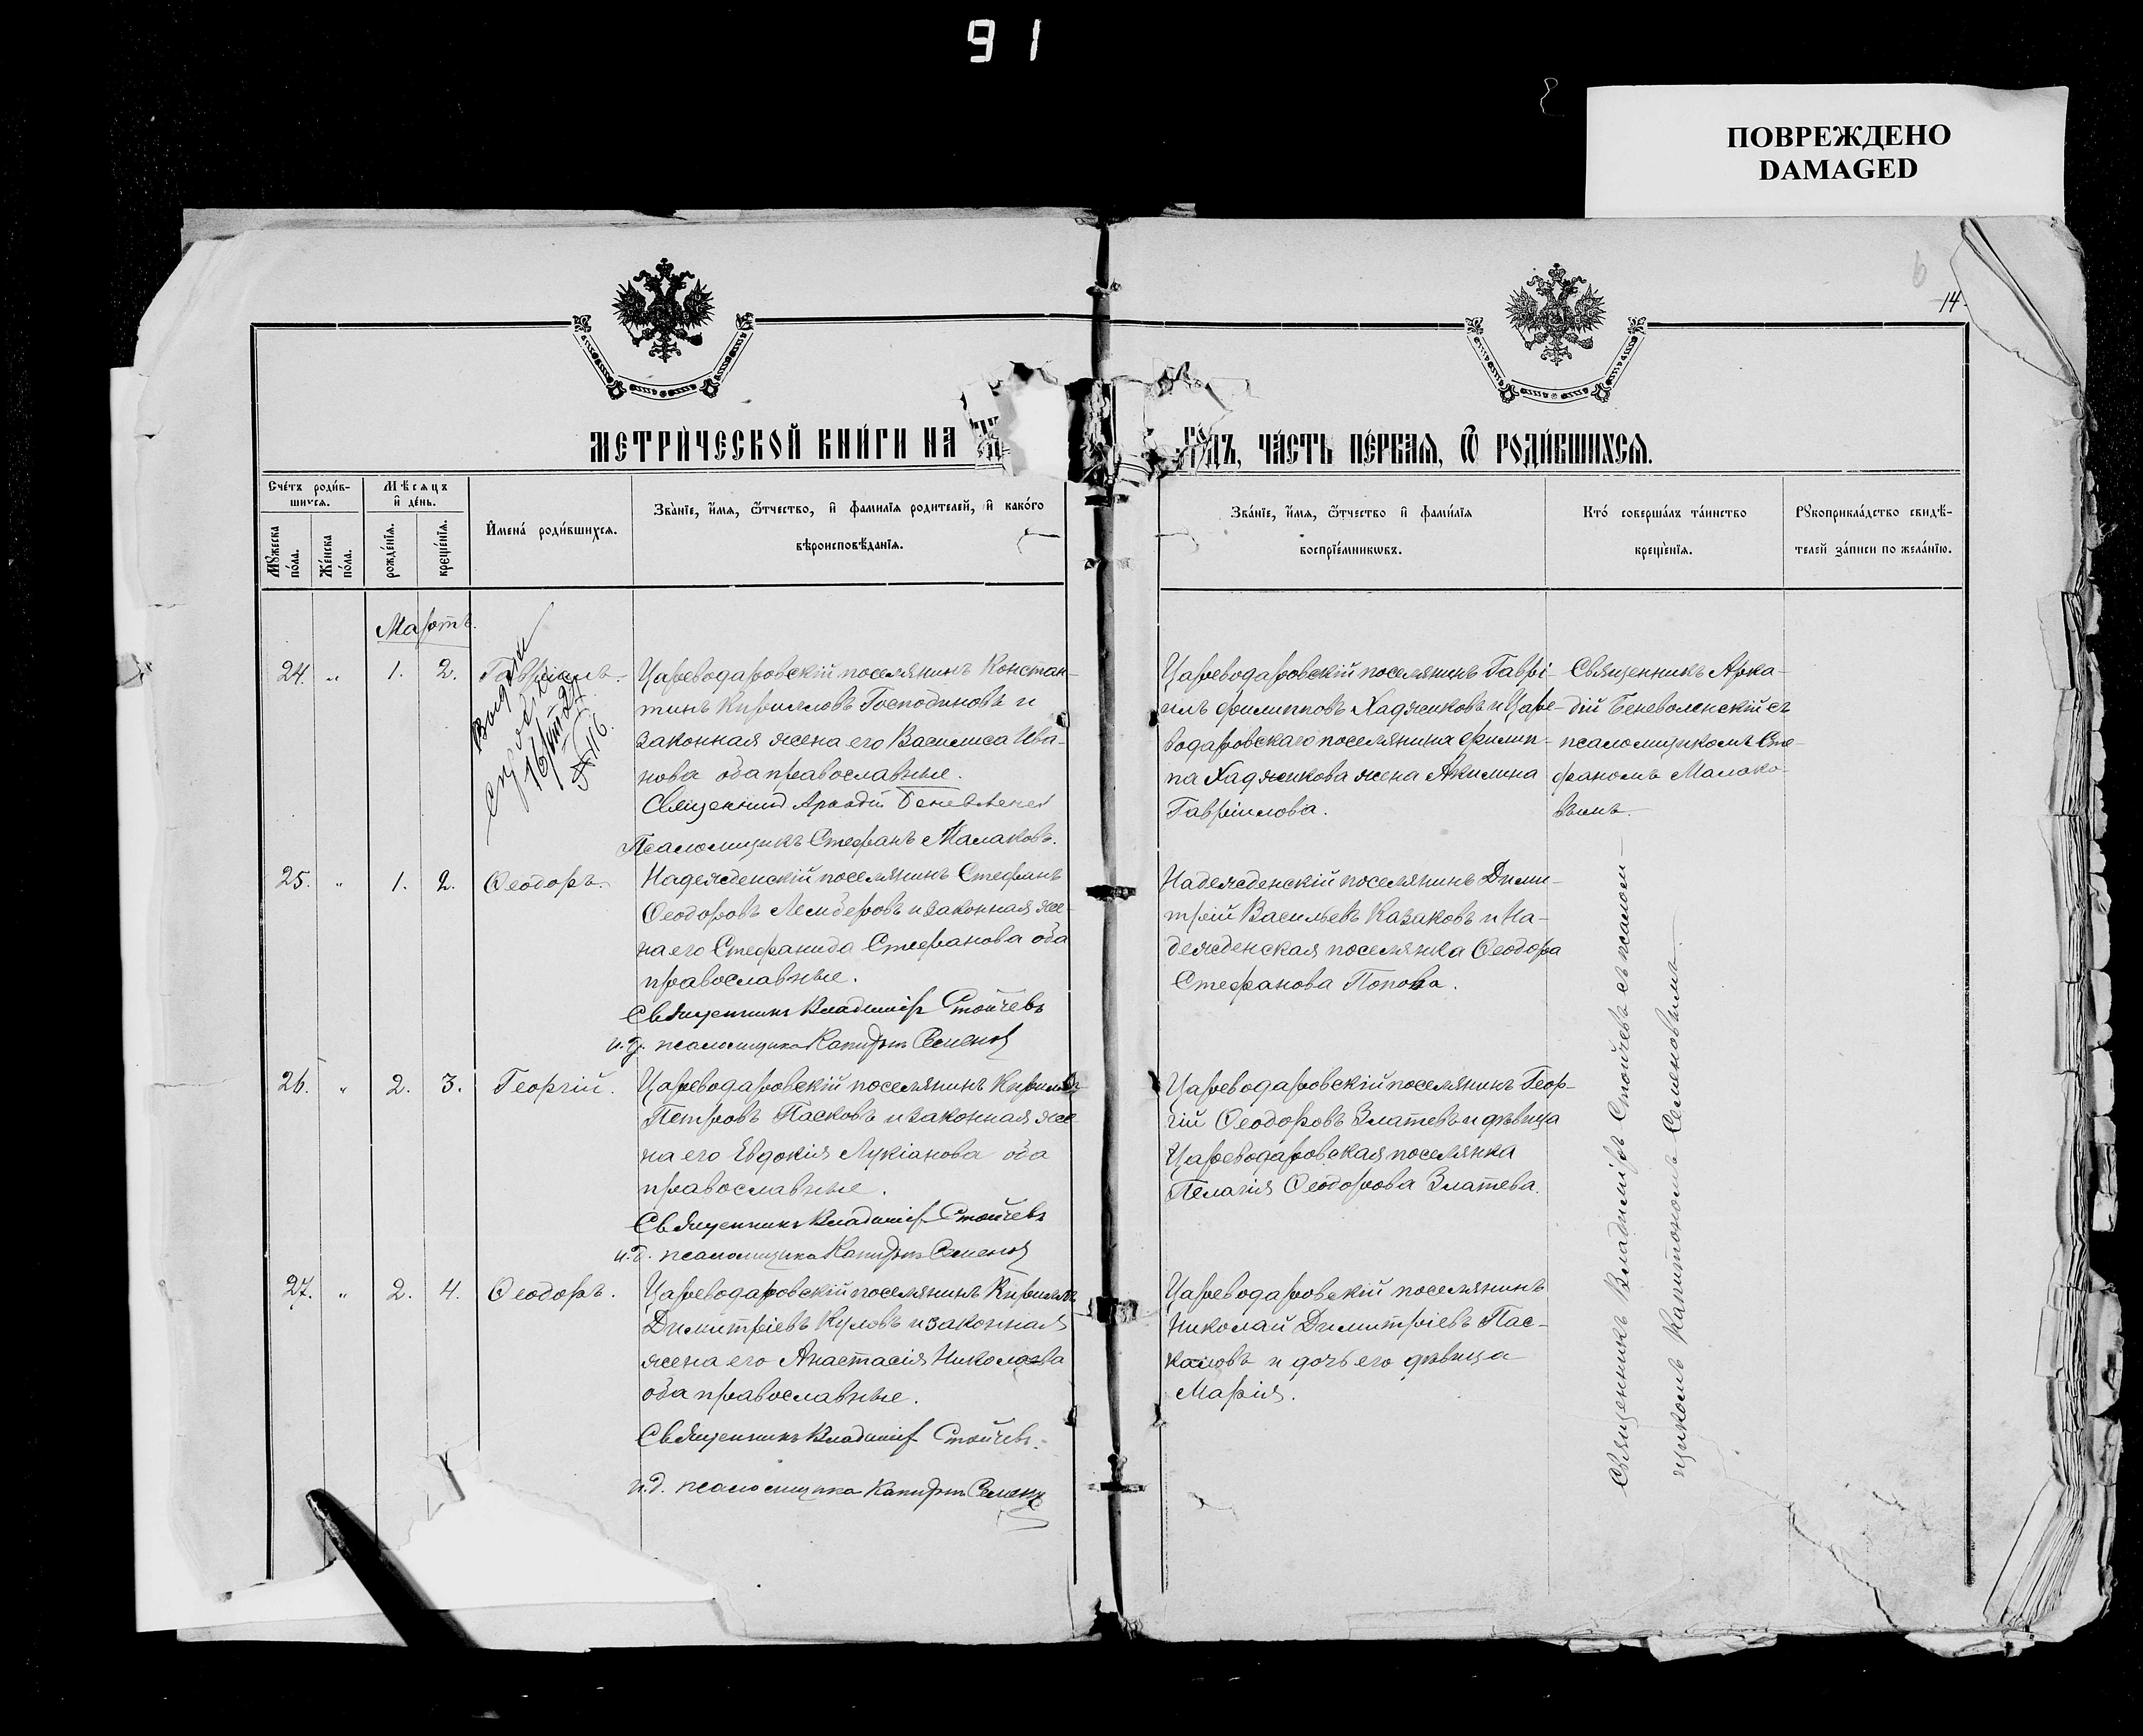 91
ПОВРЕЖДЕНО
DAMAGED
14.
МЕТРИ́ЧЕСКОЙ КНИ́ГИ НА
ГО́ДЪ, ЧА́СТЬ ПЕ́РВАЯ, Ѿ РОДИ́ВШИХСЯ.
Сче́тъ роди́в-
шихся.
Мꙋ́жеска по́ла.
Же́нска по́ла.
Мѣсяцъ
и҆ де́нь.
рожде́нїя.
креще́нїя.
И҆мена̀ роди́вшихся.
Зва́нїе, и҆́мя, ѻ҆́тчество, и҆ фами́лїя роди́телей, и҆ како́гѡ
вѣроисповѣ́данїя.
Зва́нїе, и҆́мя, ѻ҆́тчество и҆ фами́лїя
воспрїе́мникѡвъ.
Кто̀ соверша́лъ та́инство
креще́нїя.
Рꙋкоприкла́дство свидѣ́-
телей за́писи по жела́нїю.
Мартъ.
24. „ 1. 2. Гавріилъ.
Цареводаровскій поселянинъ Констан-
тинъ Кирилловъ Господиновъ и
законная жена его Василиса Ива-
нова оба православные.
Священникъ Аркадій Беневоленскій
Псаломщикъ Стефанъ Малаковъ.
Цареводаровскій поселянинъ Гаврі-
илъ Филипповъ Хаджиковъ и Царе-
водаровскаго поселянина Филип-
па Хаджикова жена Акилина
Гавріилова.
Священникъ Арка-
дій Беневоленскій съ
псаломщикомъ Сте-
фаномъ Малако-
вымъ.
25. „ 1. 2. Ѳеодоръ.
Надежденскій поселянинъ Стефанъ
Ѳеодоровъ Лемберовъ и законная же-
на его Стефанида Стефанова оба
православные.
Священникъ Владиміръ Стойчевъ
и.д. псаломщика Капитонъ Семеновъ
Надежденскій поселянинъ Дими-
трій Васильевъ Казаковъ и На-
дежденская поселянка Ѳеодора
Стефанова Попова.
26. „ 2. 3. Георгій.
Цареводаровскій поселянинъ Кириллъ
Петровъ Пасковъ и законная же-
на его Евдокія Лукіанова оба
православные.
Священникъ Владиміръ Стойчевъ
и.д. псаломщика Капитонъ Семеновъ
Цареводаровскій поселянинъ Геор-
гій Ѳеодоровъ Златевъ и дѣвица
Цареводаровская поселянка
Пелагія Ѳеодорова Златева.
27. „ 2. 4. Ѳеодоръ.
Цареводаровскій поселянинъ Кириллъ
Димитріевъ Куловъ и законная
жена его Анастасія Николаева
оба православные.
Священникъ Владиміръ Стойчевъ.
и.д. псаломщика Капитонъ Семеновъ
Цареводаровскій поселянинъ
Николай Димитріевъ Пас-
каловъ и дочь его дѣвица
Марія.
Священникъ Владиміръ Стойчевъ съ псалом-
щикомъ Капитономъ Семеновымъ.